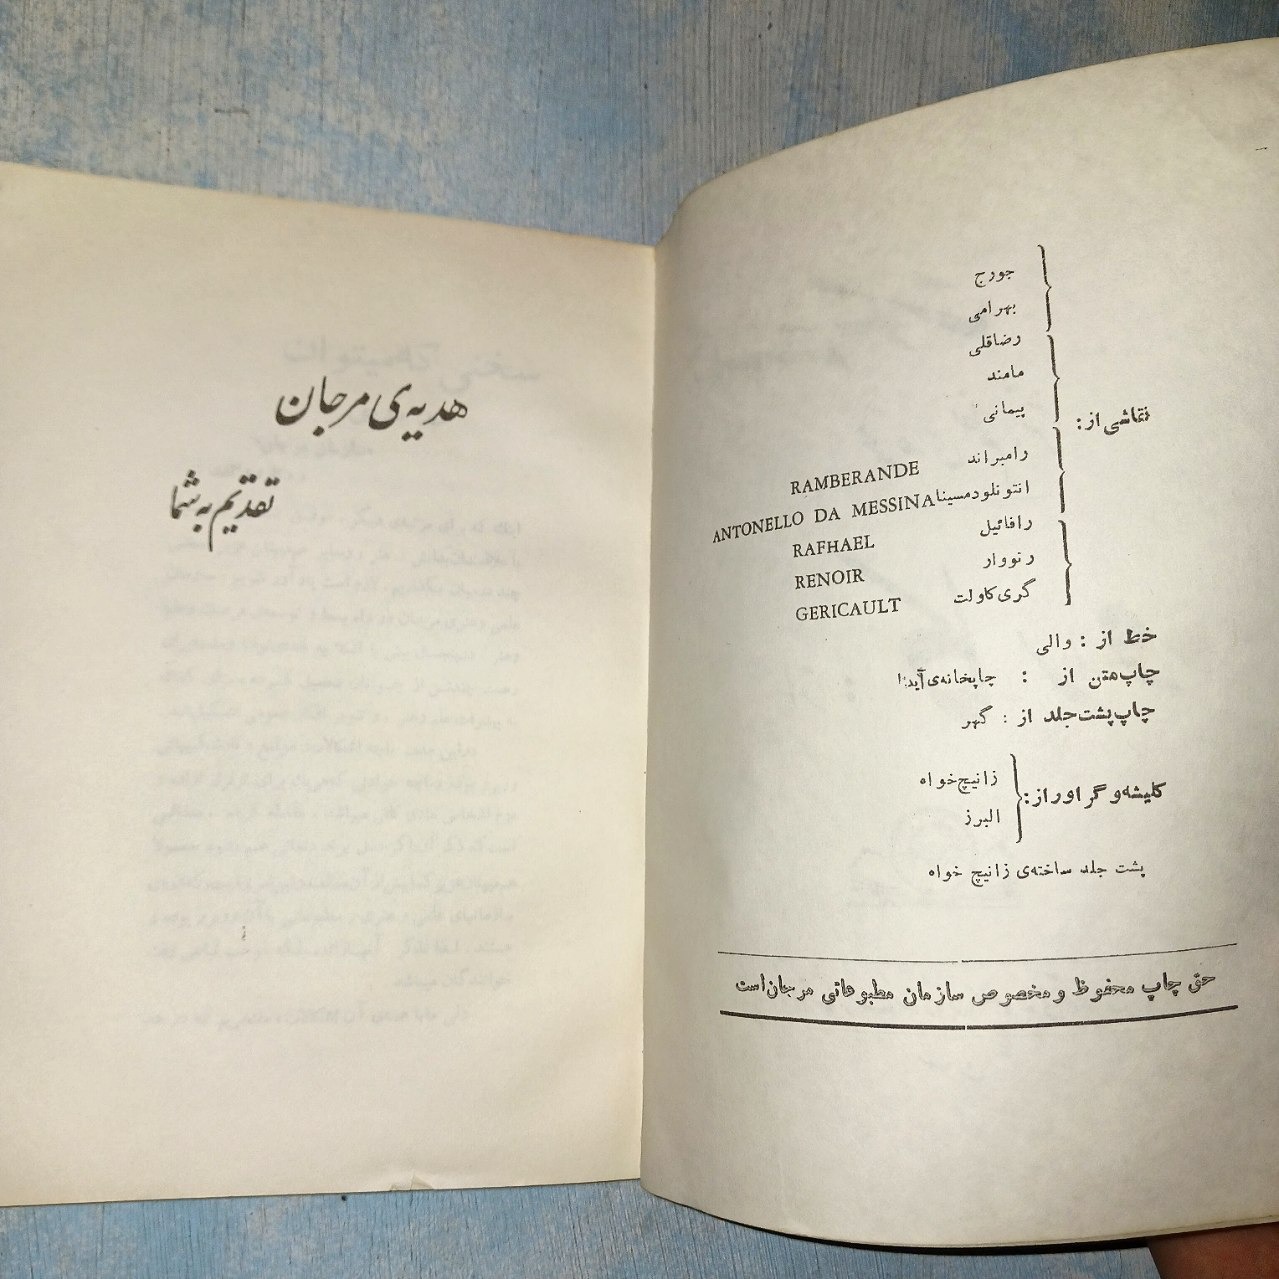 جورج
بهرامی
رضاقلی
مامند
پیمانی
نقاشی از:
رامبراند RAMBERANDE
انتونلودمسینا ANTONELLO DA MESSINA
رافائیل RAFHAEL
رنووار RENOIR
گری‌کاولت GERICAULT
خط از : والی
چاپ‌متن از : چاپخانه‌ی آیدا
چاپ‌پشت‌جلد از : گهر
زانیچ‌خواه
کلیشه‌و گراوراز:
البرز
پشت جلد ساخته‌ی زانیچ خواه
حق چاپ محفوظ و مخصوص سازمان مطبوعاتی مرجان‌است
هدیه‌ی مرجان
تقدیم به شما